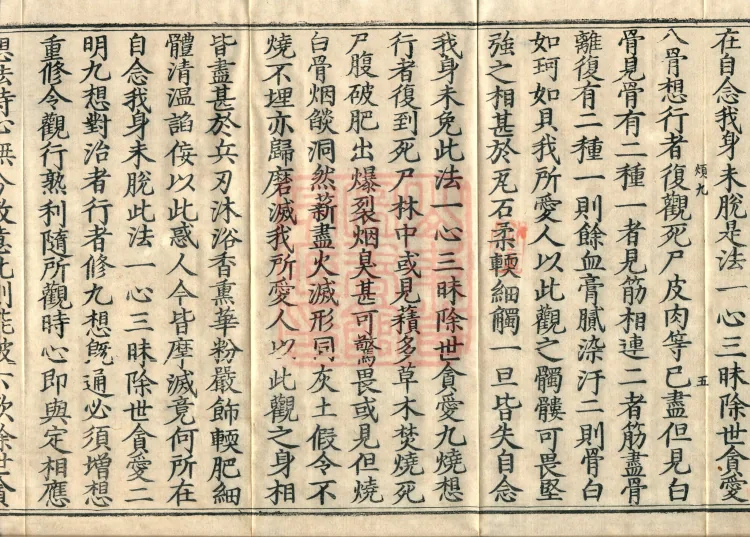 在自念我身未脫是法一心三昧除世貪愛
八骨想行者復觀死尸皮肉等已盡但見白
煩九
五
骨見骨有二種一者見筋相連二者筋盡骨
離復有二種一則餘血膏膩染汙二則骨白
如珂如貝我所愛人以此觀之髑髏可畏堅
強之相甚於瓦石柔輭細觸一旦皆失自念
我身未免此法一心三昧除世貪愛九燒想
行者復到死尸林中或見積多草木焚燒死
尸腹破肥出爆裂烟臭甚可驚畏或見但燒
白骨烟燄洞然薪盡火滅形同灰土假令不
燒不埋亦歸磨滅我所愛人以此觀之身相
皆盡甚於兵刃沐浴香熏華粉嚴飾輭肥細
體清溫諂佞以此惑人今皆摩滅竟何所在
自念我身未脫此法一心三昧除世貪愛二
明九想對治者行者修九想旣通必須增想
重修令觀行熟利隨所觀時心即與定相應
想法持心無令散意此則能破六欲除世貪